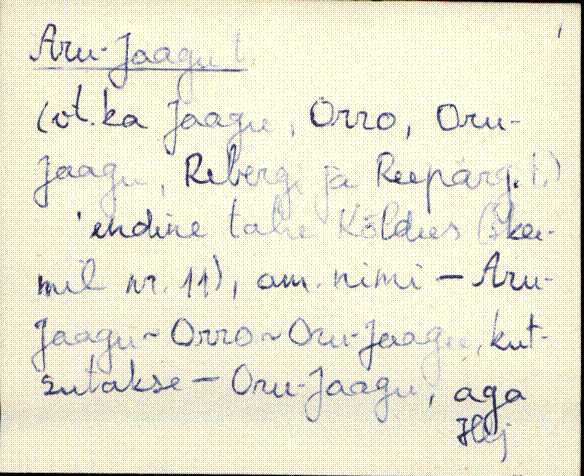 Aru-Jaagu t.
(vt. ka Jaagu, Orro, Oru-
Jaagu, Rebergi ja Reepärg. t.)
'endine talu Kõldus (skee-
mil nr. 11), am. nimi – Aru-
Jaagu ~ Orro ~ Oru-Jaagu, kut-
sutakse – Oru-Jaagu, aga
Hlj
1